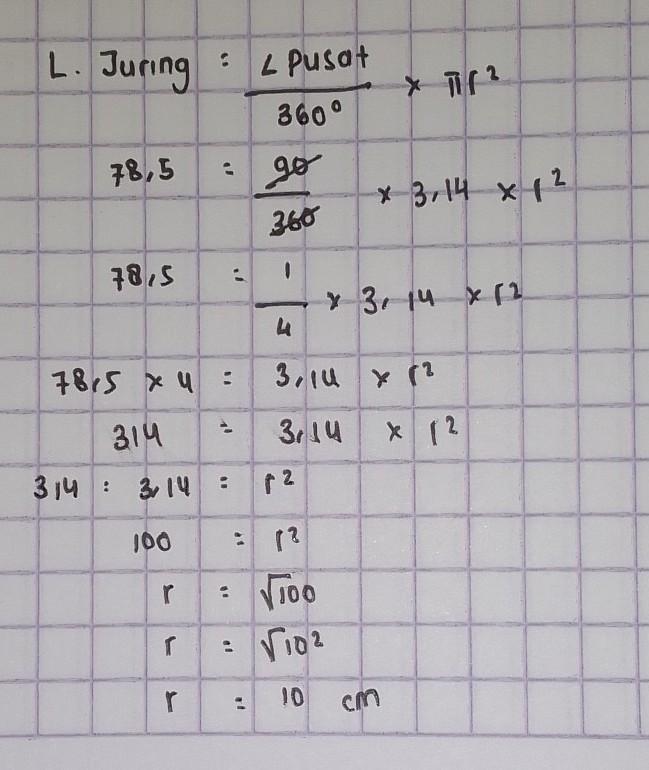 L. Juring = ∠ pusat / 360° × πr²
78,5 = 90 / 360 × 3,14 × r²
78,5 = 1 / 4 × 3,14 × r²
78,5 × 4 = 3,14 × r²
314 = 3,14 × r²
314 : 3,14 = r²
100 = r²
r = √100
r = √10²
r = 10 cm